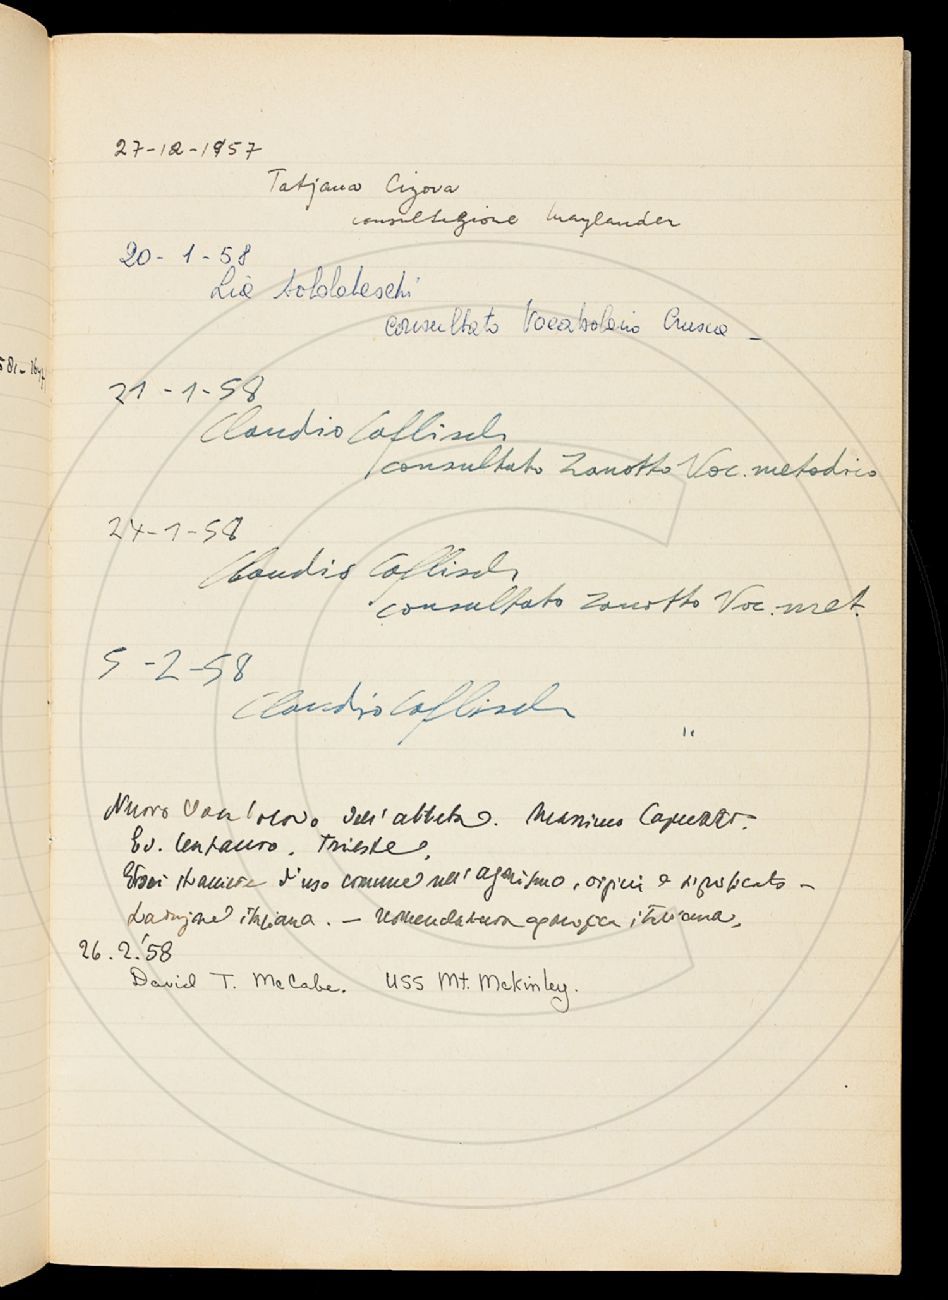 27-12-1957
Tatjana Cizova
consultazione Maylander
20-1-58
Lia
consultato Vocabolario Crusca -
21-1-58
Claudio Caflisch
consultato Zanotto Voc. metodico
24-1-58
Claudio Caflisch
consultato Zanotto Voc. met.
5-2-58
Claudio Caflisch "
Nuovo dell' atleta. Massimo
Ed. Centauro. Trieste,
d'uso comune nell' , origini e significato -
italiana. - italiana,
26.2.'58
David T. McCabe. USS Mt. McKinley.